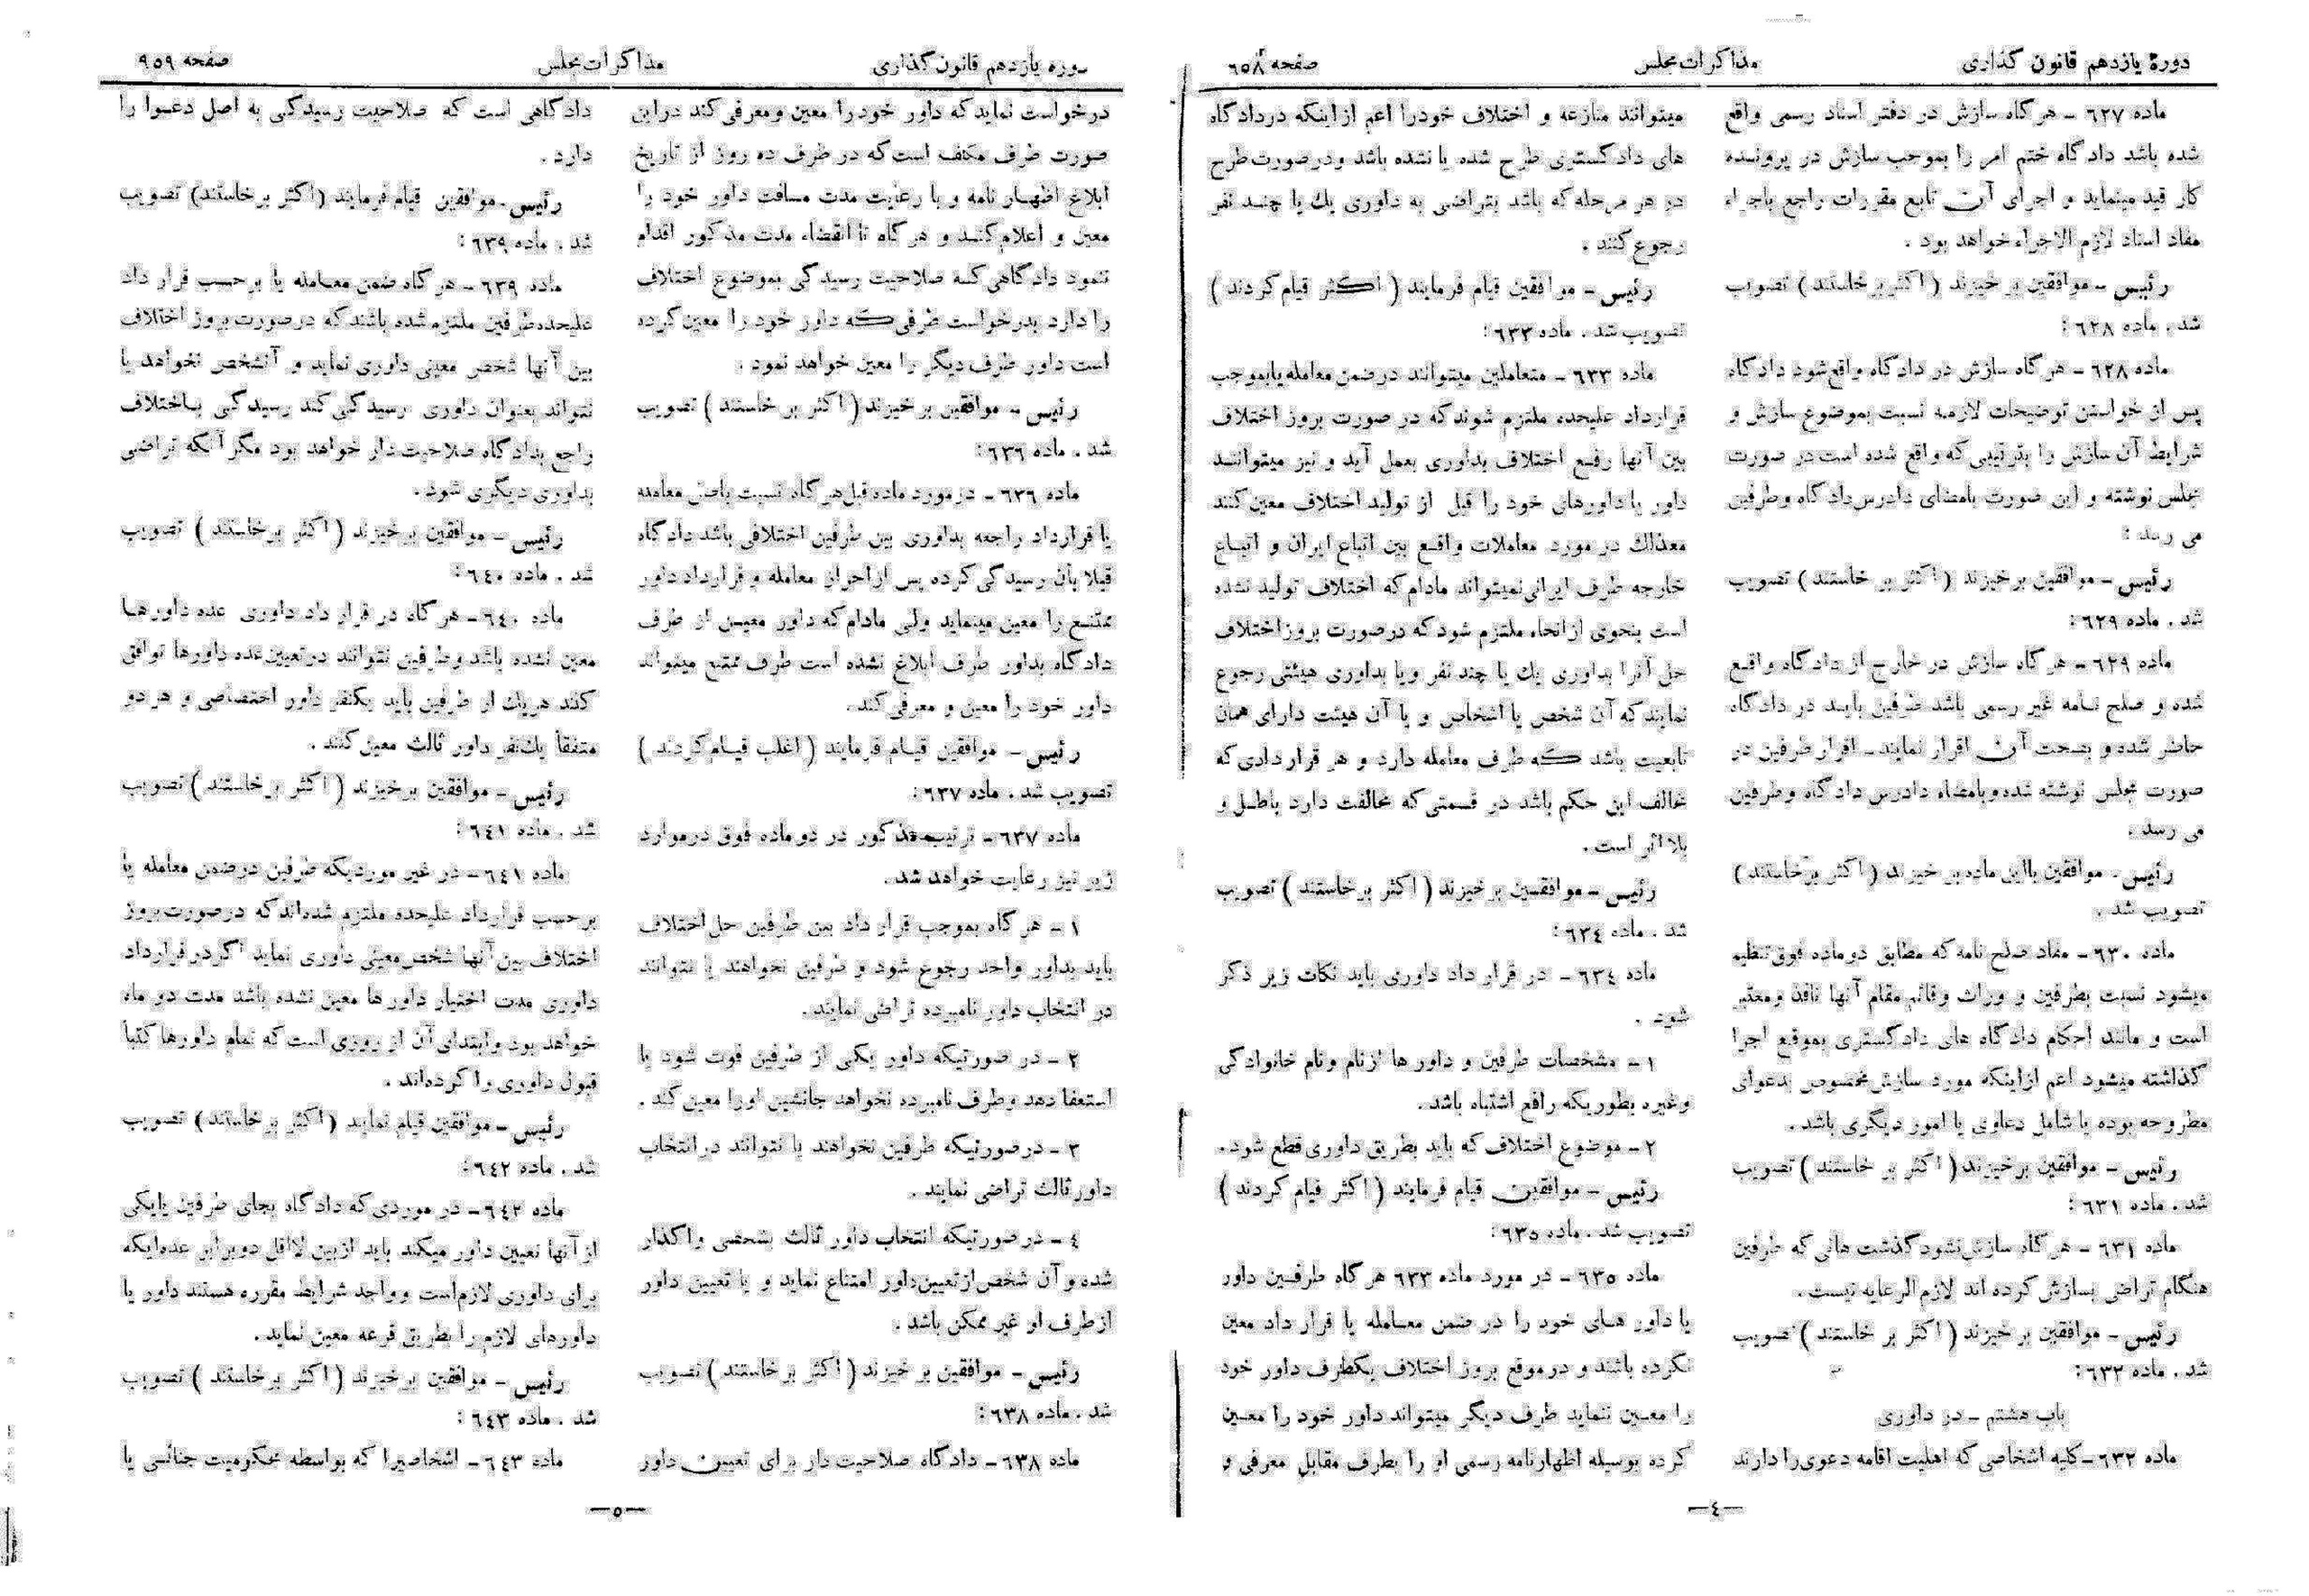 دورهٔ یازدهم قانون گذاری
مذاکرات مجلس
صفحه ۶۵۸
ماده ۶۲۷ ــ هرگاه سازش در دفتر اسناد رسمی واقع
شده باشد دادگاه ختم امر را بموجب سازش در پرونده
کار قید مینماید و اجرای آن تابع مقررات راجع باجراء
مفاد اسناد لازم الاجراء خواهد بود .
رئیس ــ موافقین بر خیزند ( اکثر بر خاستند ) تصویب
شد . ماده ۶۲۸ :
ماده ۶۲۸ ــ هرگاه سازش در دادگاه واقع شود دادگاه
پس از خواستن توضیحات لازمه نسبت بموضوع سازش و
شرایط آن سازش را بترتیبی که واقع شده است در صورت
مجلس نوشته و این صورت بامضای دادرس دادگاه و طرفین
می رسد :
رئیس ــ موافقین بر خیزند ( اکثر بر خاستند ) تصویب
شد . ماده ۶۲۹ :
ماده ۶۲۹ ــ هرگاه سازش در خارج از دادگاه واقع
شده و صلح نامه غیر رسمی باشد طرفین باید در دادگاه
حاضر شده و بصحت آن اقرار نمایند ــ اقرار طرفین در
صورت مجلس نوشته شده و بامضاء دادرس دادگاه و طرفین
می رسد .
رئیس ــ موافقین بااین ماده بر خیزند ( اکثر برخاستند )
تصویب شد .
ماده ۶۳۰ ــ مفاد صلح نامه که مطابق دو ماده فوق تنظیم
میشود نسبت بطرفین و وراث و قائم مقام آنها نافذ و معتبر
است و مانند احکام دادگاه های دادگستری بموقع اجرا
گذاشته میشود اعم از اینکه مورد سازش مخصوص بدعوای
مطروحه بوده یا شامل دعاوی یا امور دیگری باشد .
رئیس ــ موافقین برخیزند ( اکثر بر خاستند ) تصویب
شد . ماده ۶۳۱ :
ماده ۶۳۱ ــ هرگاه سازش نشود گذشت هائی که طرفین
هنگام تراضی بسازش کرده اند لازم الرعایه نیست .
رئیس ــ موافقین بر خیزند ( اکثر بر خاستند ) تصویب
شد . ماده ۶۳۲ :
باب هشتم ــ در داوری
ماده ۶۳۲ ــ کلیه اشخاصی که اهلیت اقامه دعوی را دارند
میتوانند منازعه و اختلاف خودرا اعم از اینکه در دادگاه
های دادگستری طرح شده یا نشده باشد و در صورت طرح
در هر مرحله که باشد بتراضی به داوری یك یا چند نفر
رجوع کنند .
رئیس ــ موافقین قیام فرمایند ( اکثر قیام کردند )
تصویب شد . ماده ۶۳۳ :
ماده ۶۳۳ ــ متعاملین میتوانند در ضمن معامله یا بموجب
قرارداد علیحده ملتزم شوند که در صورت بروز اختلاف
بین آنها رفع اختلاف بداوری بعمل آید و نیز میتوانند
داور یا داورهای خود را قبل از تولید اختلاف معین کنند
معذلك در مورد معاملات واقع بین اتباع ایران و اتباع
خارجه طرف ایرانی نمیتواند مادام که اختلاف تولید نشده
است بنحوی از انحاء ملتزم شود که در صورت بروز اختلاف
حل آنرا بداوری یك یا چند نفر و یا بداوری هیئتی رجوع
نمایند که آن شخص یا اشخاص و یا آن هیئت دارای همان
تابعیت باشد که طرف معامله دارد و هر قراردادی که
مخالف این حکم باشد در قسمتی که مخالفت دارد باطل و
بلا اثر است .
رئیس ــ موافقین بر خیزند ( اکثر بر خاستند ) تصویب
شد . ماده ۶۳٤ :
ماده ۶۳٤ ــ در قرار داد داوری باید نکات زیر ذکر
شود .
۱ ــ مشخصات طرفین و داور ها از نام و نام خانوادگی
و غیره بطوریکه رافع اشتباه باشد .
۲ ــ موضوع اختلاف که باید بطریق داوری قطع شود .
رئیس ــ موافقین قیام فرمایند ( اکثر قیام کردند )
تصویب شد . ماده ۶۳۵ :
ماده ۶۳۵ ــ در مورد ماده ۶۳۳ هرگاه طرفین داور
یا داور های خود را در ضمن معامله یا قرار داد معین
نکرده باشند و در موقع بروز اختلاف یکطرف داور خود
را معین ننماید طرف دیگر میتواند داور خود را معین
کرده بوسیله اظهارنامه رسمی او را بطرف مقابل معرفی و
ــ٤ــ
دوره یازدهم قانون گذاری
مذاکرات مجلس
صفحه ۹۵۹
درخواست نماید که داور خود را معین و معرفی کند در این
صورت طرف مکلف است که در ظرف ده روز از تاریخ
ابلاغ اظهار نامه و با رعایت مدت مسافت داور خود را
معین و اعلام کند و هرگاه تا انقضاء مدت مذکور اقدام
ننمود دادگاهی که صلاحیت رسیدگی بموضوع اختلاف
را دارد بدرخواست طرفی که داور خود را معین کرده
است داور طرف دیگر را معین خواهد نمود .
رئیس ــ موافقین بر خیزند ( اکثر بر خاستند ) تصویب
شد . ماده ۶۳۶ :
ماده ۶۳۶ ــ در مورد ماده قبل هرگاه نسبت باصل معامله
یا قرارداد راجعه بداوری بین طرفین اختلافی باشد دادگاه
قبلا بآن رسیدگی کرده پس از احراز معامله و قرارداد داور
ممتنع را معین مینماید ولی مادام که داور معین از طرف
دادگاه بداور طرف ابلاغ نشده است طرف ممتنع میتواند
داور خود را معین و معرفی کند .
رئیس ــ موافقین قیام فرمایند ( اغلب قیام کردند )
تصویب شد . ماده ۶۳۷ :
ماده ۶۳۷ ــ ترتیب مذکور در دو ماده فوق در موارد
زیر نیز رعایت خواهد شد .
۱ ــ هرگاه بموجب قرار داد بین طرفین حل اختلاف
باید بداور واحد رجوع شود و طرفین نخواهند یا نتوانند
در انتخاب داور نامبرده تراضی نمایند .
۲ ــ در صورتیکه داور یکی از طرفین فوت شود یا
استعفا دهد و طرف نامبرده نخواهد جانشین اورا معین کند .
۳ ــ در صورتیکه طرفین نخواهند یا نتوانند در انتخاب
داور ثالث تراضی نمایند .
٤ ــ در صورتیکه انتخاب داور ثالث بشخصی واگذار
شده و آن شخص از تعیین داور امتناع نماید و یا تعیین داور
از طرف او غیر ممکن باشد .
رئیس ــ موافقین بر خیزند ( اکثر بر خاستند ) تصویب
شد . ماده ۶۳۸ :
ماده ۶۳۸ ــ دادگاه صلاحیت دار برای تعیین داور
دادگاهی است که صلاحیت رسیدگی به اصل دعوا را
دارد .
رئیس ــ موافقین قیام فرمایند ( اکثر برخاستند ) تصویب
شد . ماده ۶۳۹ :
ماده ۶۳۹ ــ هرگاه ضمن معامله یا برحسب قرار داد
علیحده طرفین ملتزم شده باشند که در صورت بروز اختلاف
بین آنها شخص معینی داوری نماید و آنشخص نخواهد یا
نتواند بعنوان داوری رسیدگی کند رسیدگی باختلاف
راجع بدادگاه صلاحیت دار خواهد بود مگر آنکه تراضی
بداوری دیگری شود .
رئیس ــ موافقین برخیزند ( اکثر برخاستند ) تصویب
شد . ماده ۶٤۰ :
ماده ۶٤۰ ــ هرگاه در قرار داد داوری عده داورها
معین نشده باشد و طرفین نتوانند در تعیین عده داورها توافق
کنند هریك از طرفین باید یکنفر داور اختصاصی و هر دو
متفقاً یك نفر داور ثالث معین کنند .
رئیس ــ موافقین برخیزند ( اکثر بر خاستند ) تصویب
شد . ماده ۶٤۱ :
ماده ۶٤۱ ــ در غیر موردیکه طرفین در ضمن معامله یا
برحسب قرارداد علیحده ملتزم شده‌اند که در صورت بروز
اختلاف بین آنها شخص معینی داوری نماید اگر در قرارداد
داوری مدت اختیار داور ها معین نشده باشد مدت دو ماه
خواهد بود و ابتدای آن از روزی است که تمام داورها کتباً
قبول داوری را کرده‌اند .
رئیس ــ موافقین قیام نمایند ( اکثر بر خاستند ) تصویب
شد . ماده ۶٤۲ :
ماده ۶٤۲ ــ در موردی که دادگاه بجای طرفین یا یکی
از آنها تعیین داور میکند باید از بین لااقل دو برابر عده‌ایکه
برای داوری لازم است و واجد شرایط مقرره هستند داور یا
داورهای لازم را بطریق قرعه معین نماید .
رئیس ــ موافقین برخیزند ( اکثر بر خاستند ) تصویب
شد . ماده ۶٤۳ :
ماده ۶٤۳ ــ اشخاصیرا که بواسطه محکومیت جنائی یا
ــ۵ــ